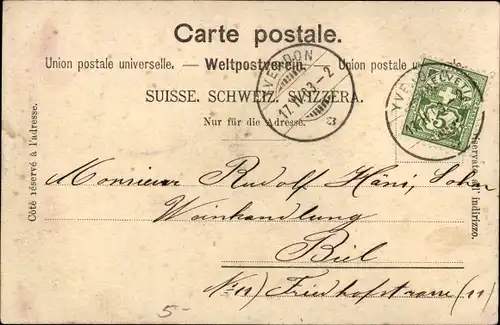 Carte postale.
Union postale universelle. — Weltpostverein. — Union postale
YVERDON
17. IV 03 - 2
SUISSE. SCHWEIZ. SVIZZERA.
Nur für die Adresse.
Côté réservé à l'adresse.
HELVETIA
5
YVE
indirizzo.
Monsieur Rudolf Häni, Sohn
Weinhandlung
Biel
No 11) Friedhofstrasse (11)
5-